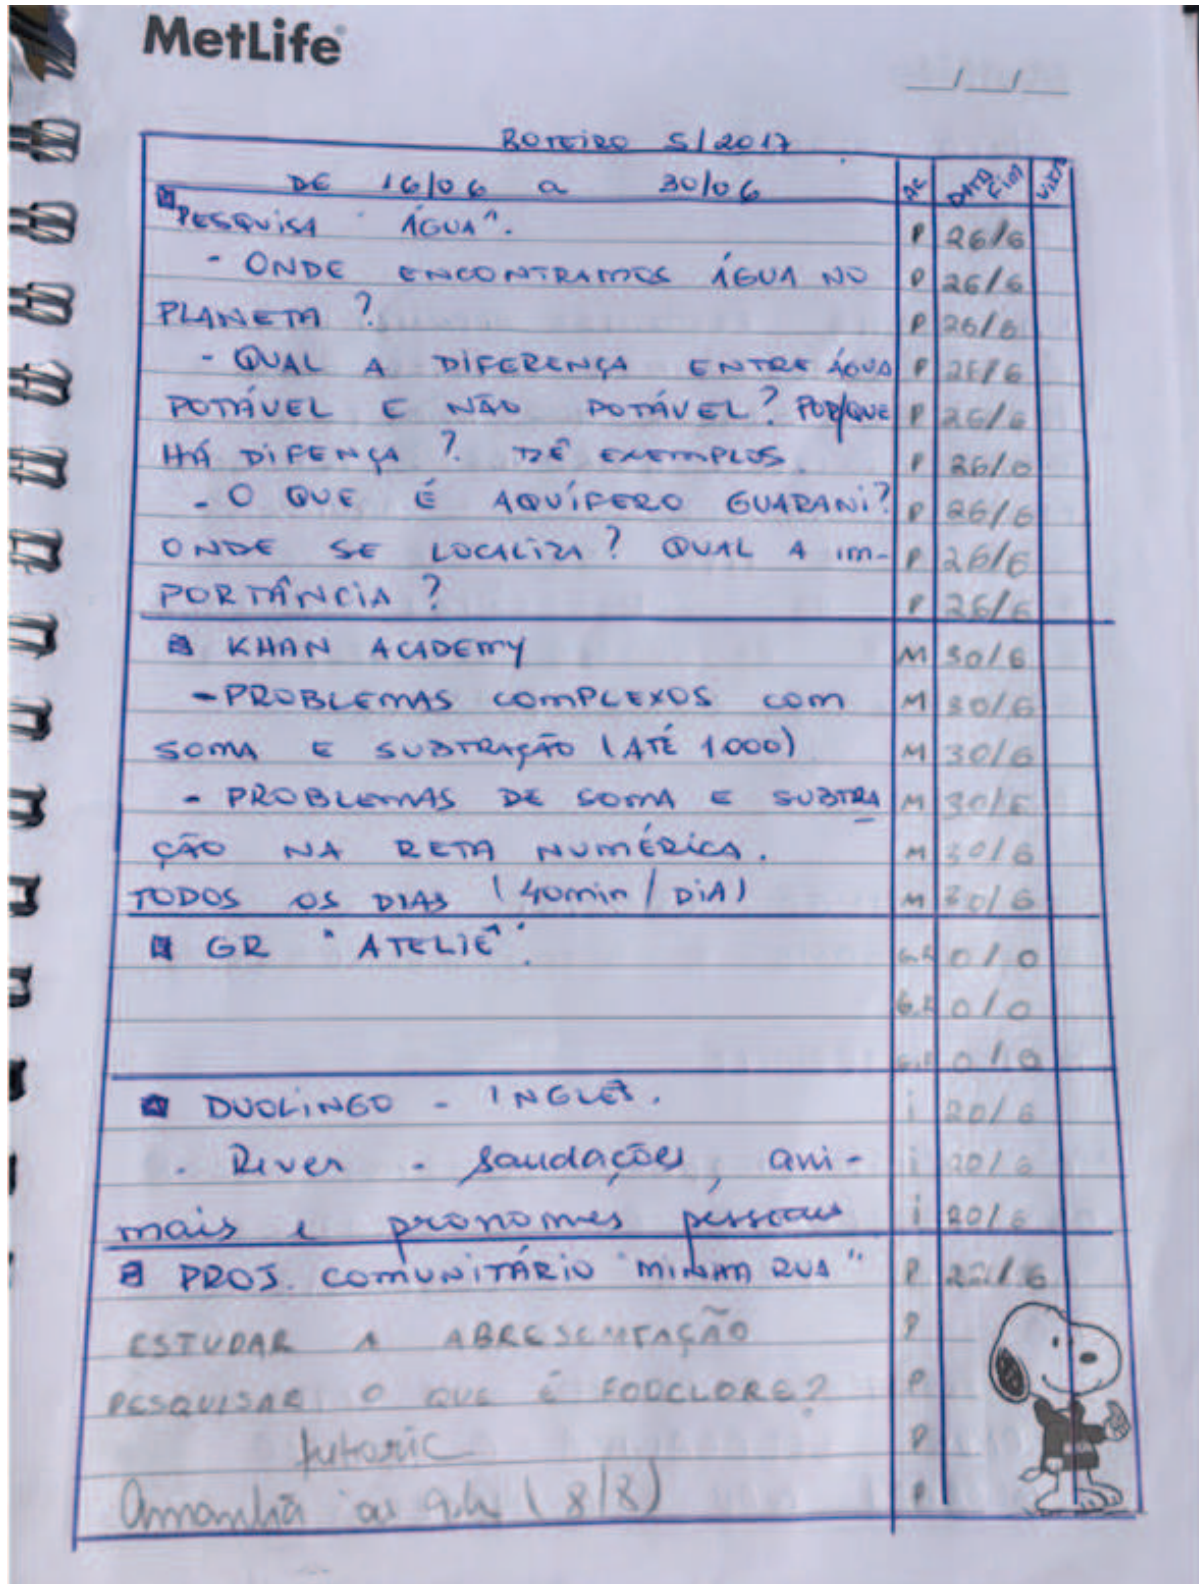 MetLife
__/__/__
ROTEIRO 5/2017
DE 16/06 a 30/06 AC DATA FIM VISTO
PESQUISA "ÁGUA". P 26/6
- ONDE ENCONTRAMOS ÁGUA NO P 26/6
PLANETA? P 26/6
- QUAL A DIFERENÇA ENTRE ÁGUA P 26/6
POTÁVEL E NÃO POTÁVEL? POR/QUE P 26/6
HÁ DIFENÇA? DÊ EXEMPLOS. P 26/6
- O QUE É AQUÍFERO GUARANI? P 26/6
ONDE SE LOCALIZA? QUAL A IM- P 26/6
PORTÂNCIA? P 26/6
KHAN ACADEMY M 30/6
- PROBLEMAS COMPLEXOS COM M 30/6
SOMA E SUBTRAÇÃO (ATÉ 1000) M 30/6
- PROBLEMAS DE SOMA E SUBTRA M 30/6
ÇÃO NA RETA NUMÉRICA. M 30/6
TODOS OS DIAS (40min/DIA) M 30/6
GR "ATELIÊ". G.R 0/0
G.R 0/0
G.R 0/0
DUOLINGO - INGLÊS. i 20/6
. Rever - saudações, ani- i 20/6
mais e pronomes pessoais i 20/6
PROJ. COMUNITÁRIO "MINHA RUA" P 22/6
ESTUDAR A ABRESENTAÇÃO P
PESQUISAR O QUE É FODCLORE? P
P
Amanhã (8/8) P